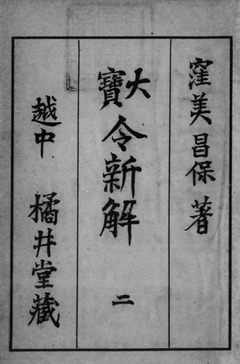 窪美昌保著
大寶令新解 二
越中 橘井堂藏